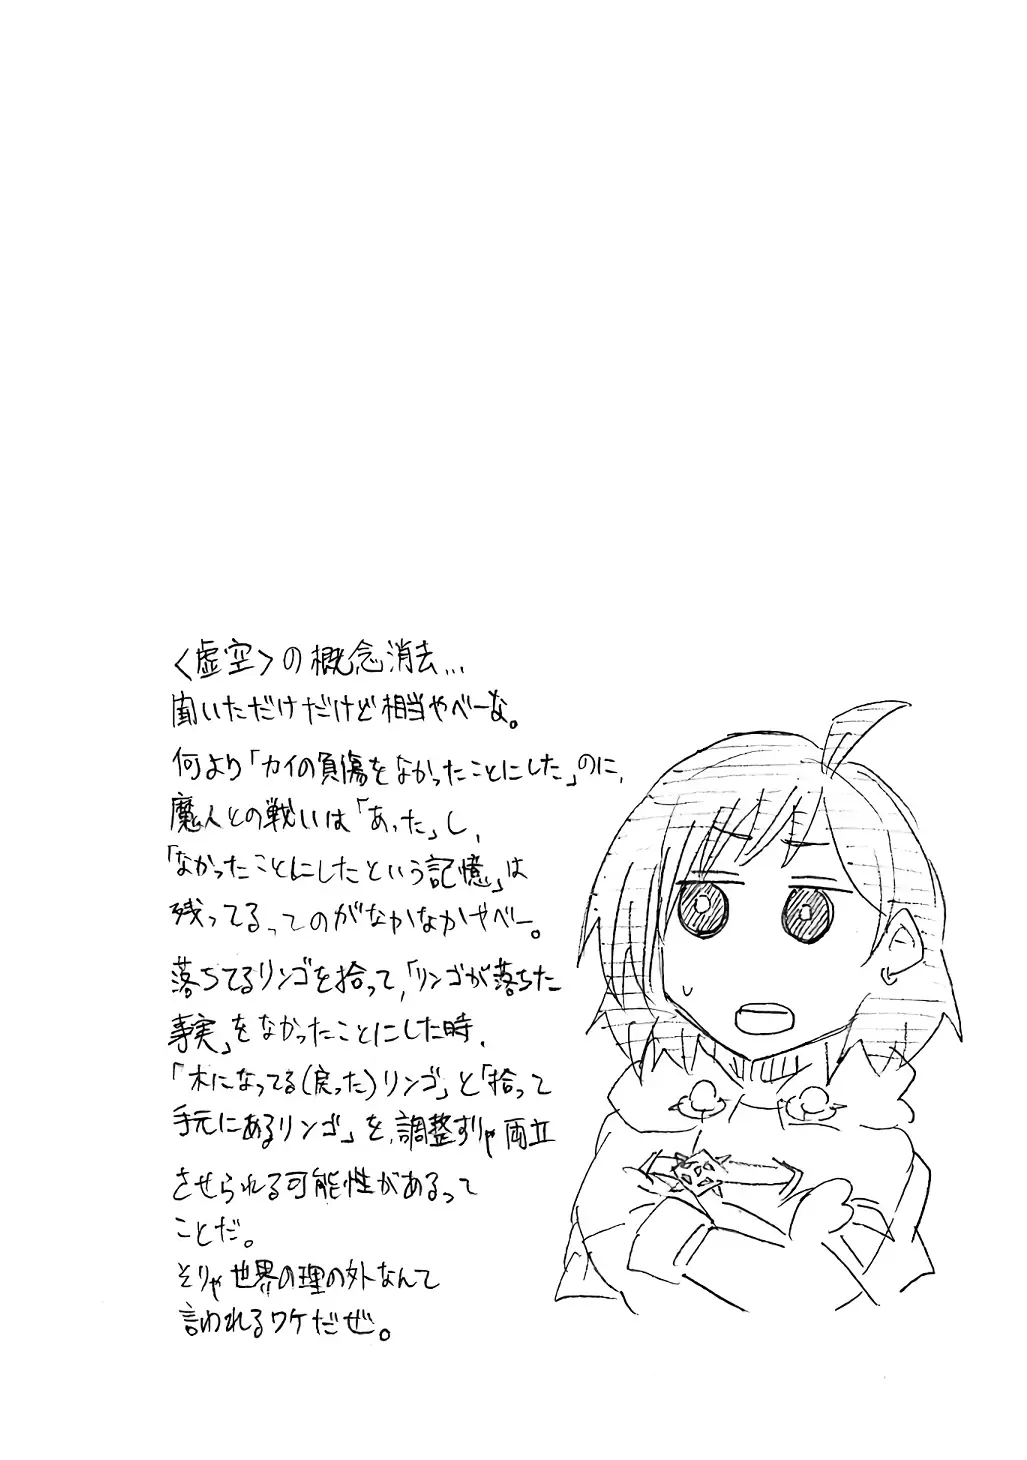 〈虚空〉の概念消去…
聞いただけだけど相当やべーな。
何より「カイの負傷をなかったことにした」のに、
魔人との戦いは「あった」し、
「なかったことにしたという記憶」は
残ってるってのがなかなかやべー。
落ちてるリンゴを拾って、「リンゴが落ちた
事実」をなかったことにした時、
「木になってる(戻った)リンゴ」と「拾って
手元にあるリンゴ」を、調整すりゃ両立
させられる可能性があるって
ことだ。
そりゃ世界の理の外なんて
言われるワケだぜ。